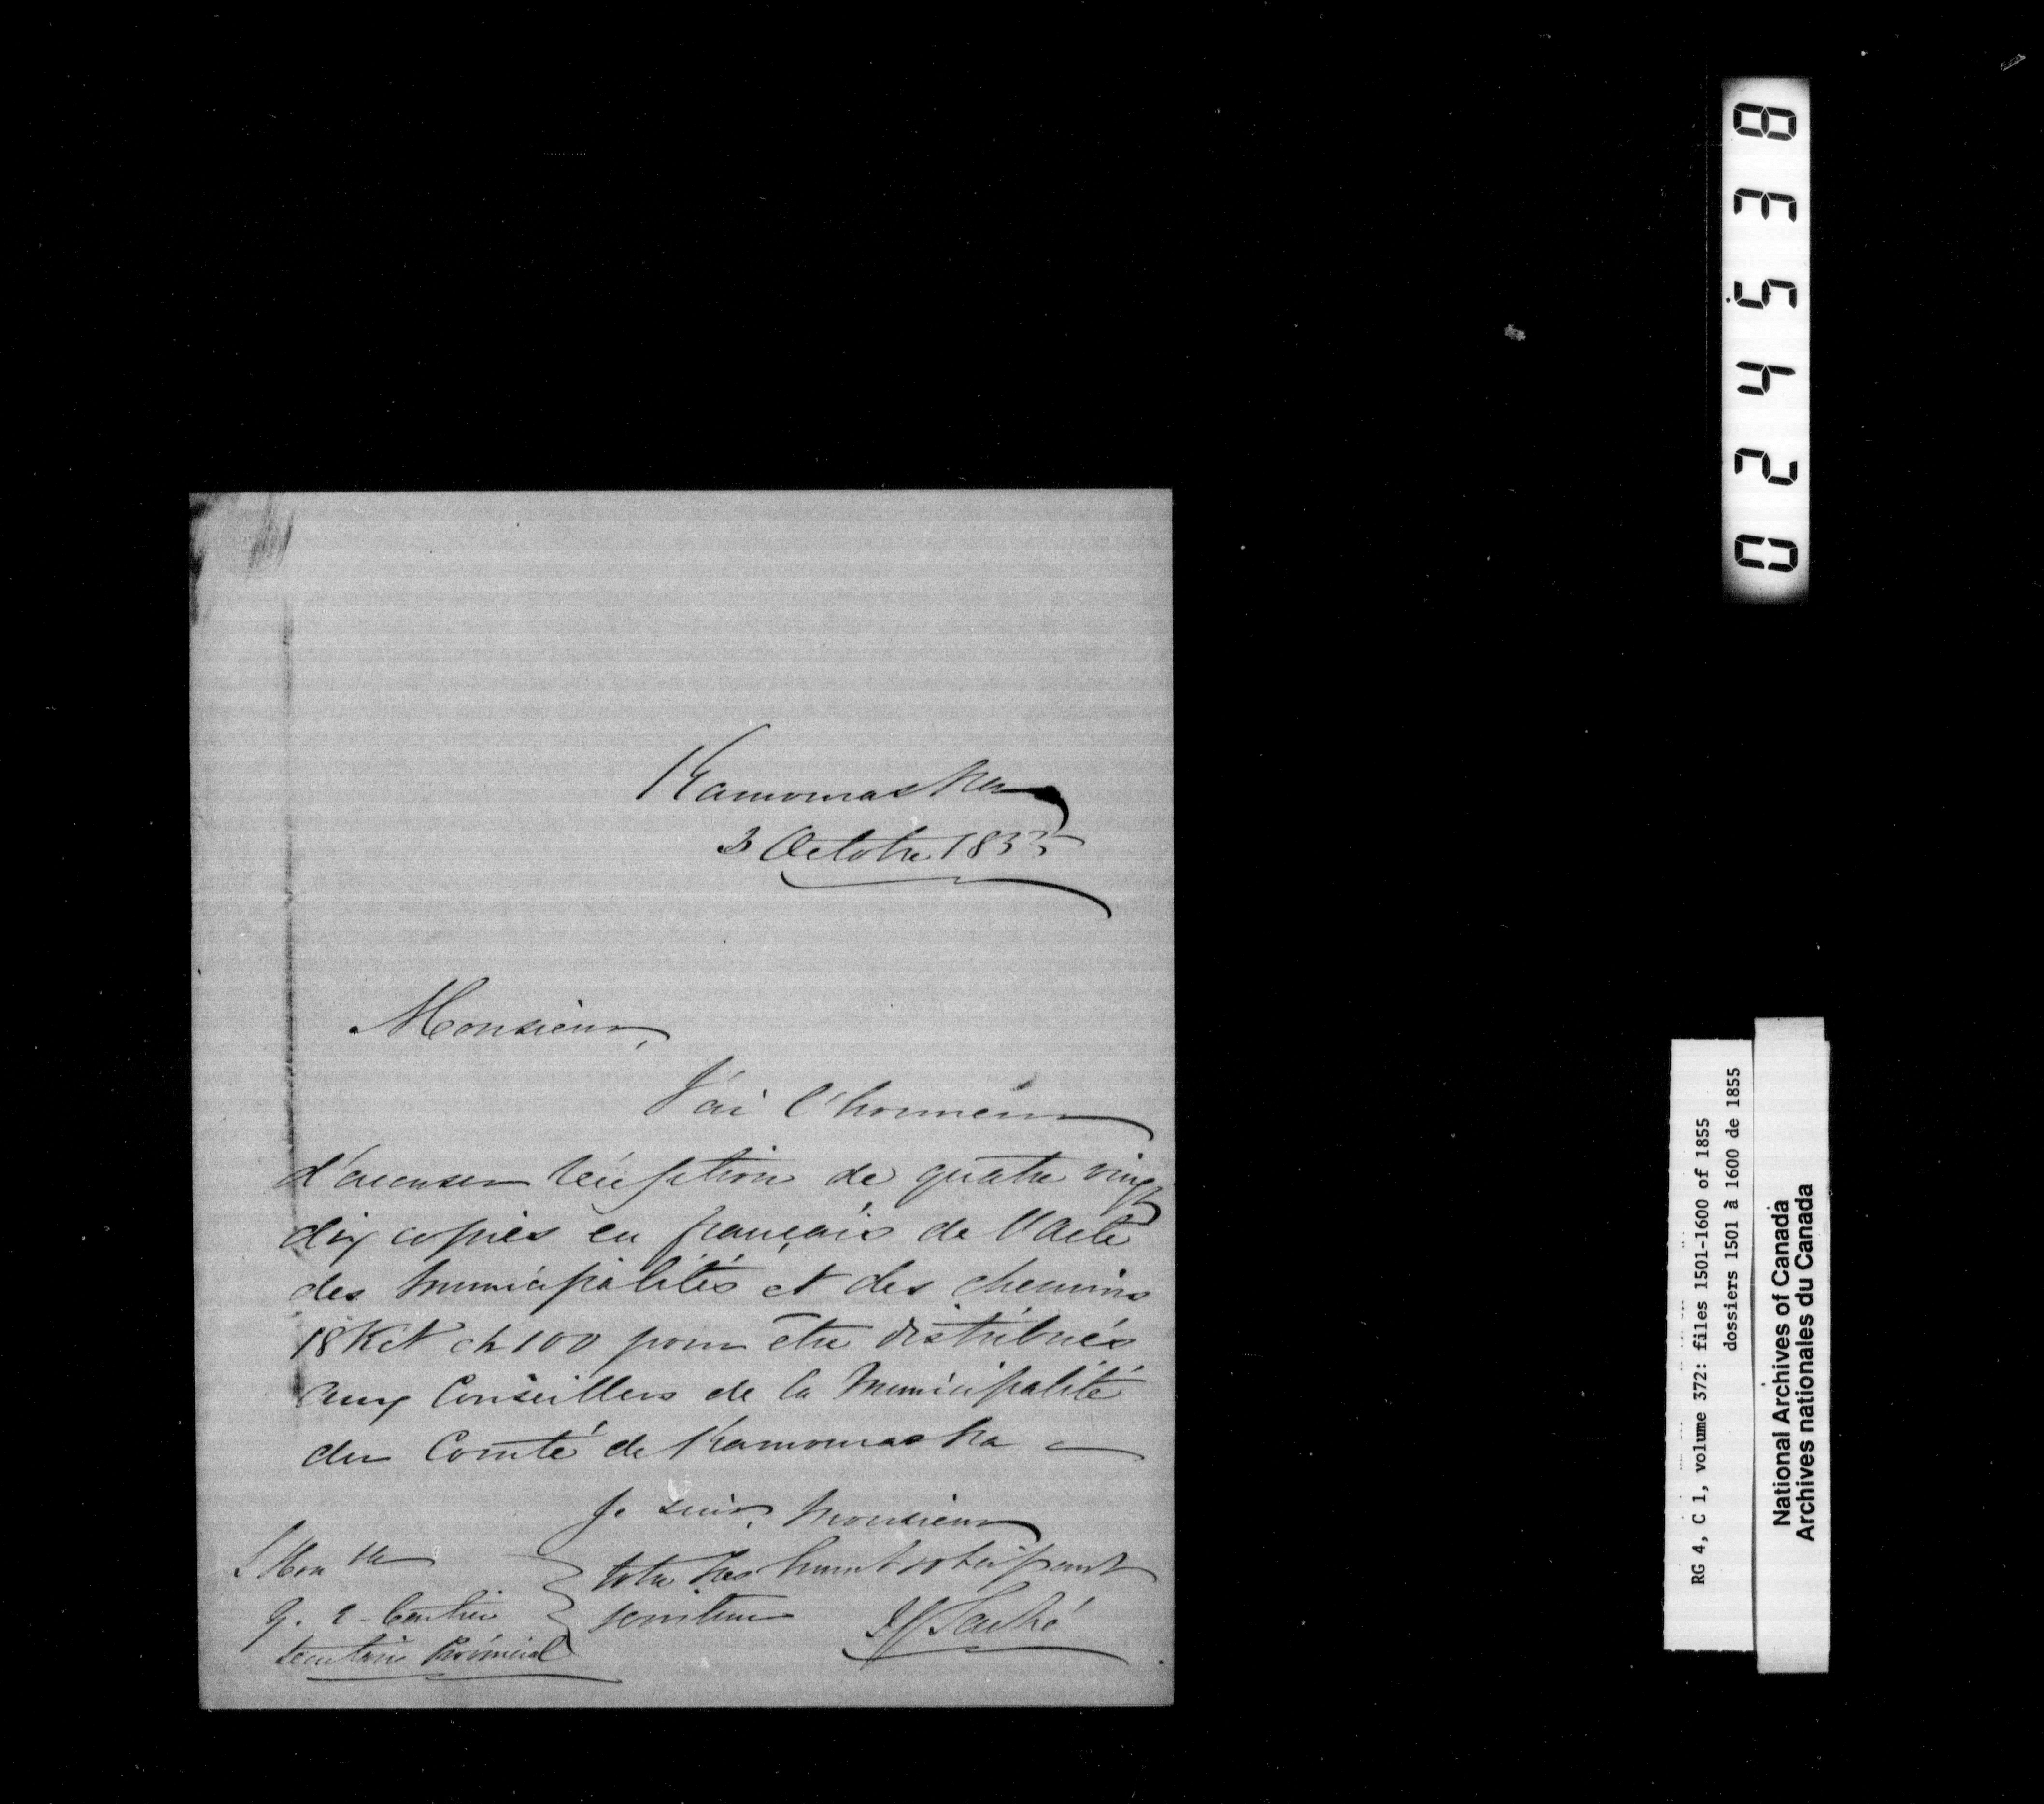 Kamouraska
3 Octobre 1855
Monsieur,
J'ai l'honneur
d'accuser réception de quatre vingt
dix copies en français de l'acte
des municipalités et des chemins
18 Vict ch 100 pour être distribués
aux Conseillers de la Municipalité
du Comté de Kamouraska
Je suis, Monsieur
Votre très humb et obéissant
serviteur
J C Taché
L'Honble
G. E. Cartier
Secrétaire Provincial
024538
RG 4, C 1, volume 372: files 1501-1600 of 1855
dossiers 1501 à 1600 de 1855
National Archives of Canada
Archives nationales du Canada